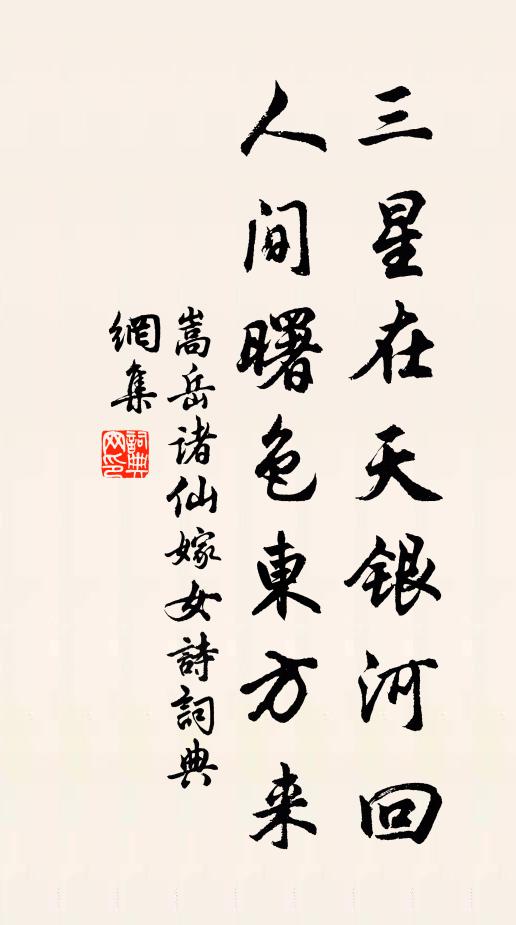 三星在天銀河回
人间曙色東方来
嵩岳诸仙嫁女詩詞典
網集
詞典
网印